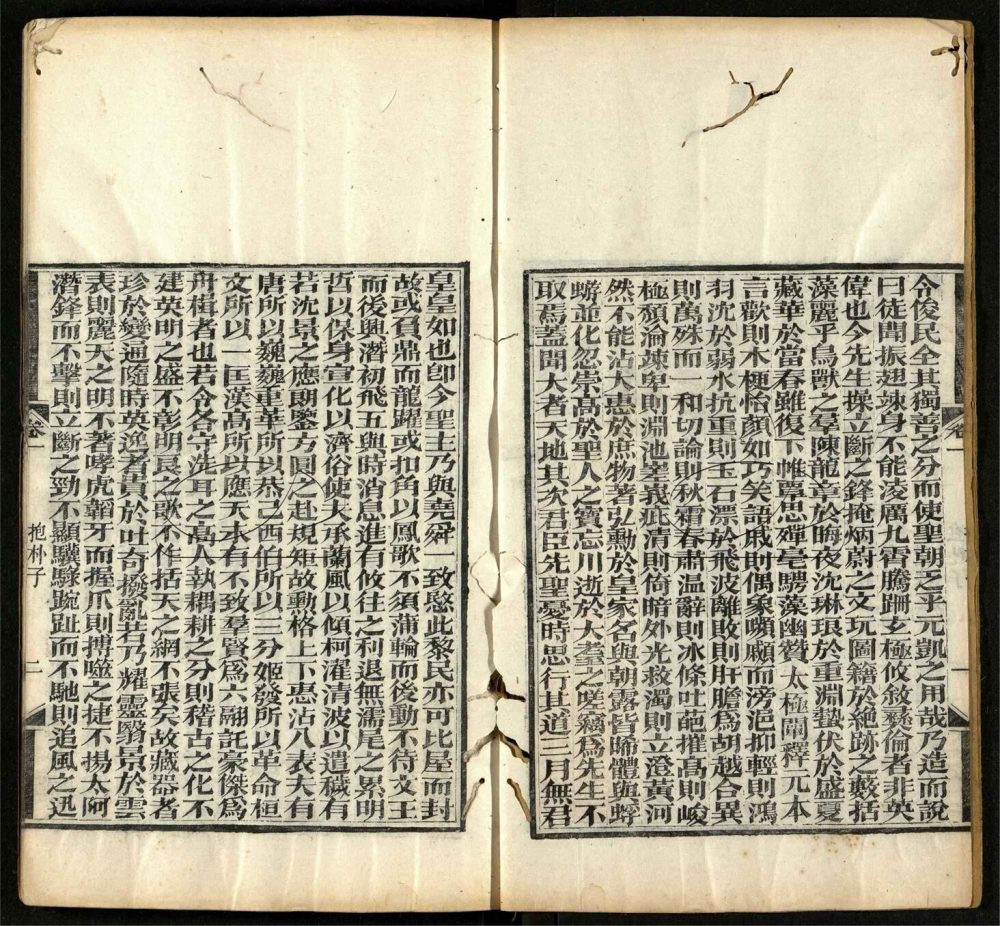 卷一
令後民全其獨善之分而使聖朝乏乎元凱之用哉乃造而說
曰徒聞振翅竦身不能淩厲九霄騰跚玄極攸敘彝倫者非英
偉也今先生操立斷之鋒掩炳蔚之文玩圖籍於絕跡之藪括
藻麗乎鳥獸之羣陳龍章於晦夜沈琳琅於重淵蟄伏於盛夏
藏華於當春雖復下帷覃思殫毫騁藻幽贊太極闡釋元本
言歡則木梗怡顏如巧笑語戚則偶象嚬顣而滂沱抑輕則鴻
羽沈於弱水抗重則玉石漂於飛波離敗則肝膽爲胡越合異
則萬殊而一和切論則秋霜春肅溫辭則冰條吐葩摧高則峻
極頹淪竦卑則淵池嵳義疵清則倚暗外光救濁則立澄黃河
然不能沾大惠於庶物著弘勳於皇家名與朝露皆晞體與蜉
蝣並化忽崇高於聖人之寶忘川逝於大耋之嗟竊爲先生不
取焉蓋聞大者天地其次君臣先聖憂時思行其道三月無君
皇皇如也卽今聖主乃與堯舜一致愍此黎民亦可比屋而封
故或負鼎而龍躍或扣角以鳳歌不須蒲輪而後動不待文王
而後興潛初飛五與時消息進有攸往之利退無濡尾之累明
哲以保身宣化以濟俗使夫承蘭風以傾柯濯清波以遣穢有
若沈景之應朗鑒方圓之赴規矩故勳格上下惠沾八表夫有
唐所以巍巍重華所以恭己西伯所以三分姬發所以革命桓
文所以一匡漢高所以應天未有不致羣賢爲六翮託豪傑爲
舟楫者也若令各守洗耳之高人執耦耕之分則稽古之化不
建英明之盛不彰明良之歌不作括天之網不張矣故藏器者
珍於變通隨時英逸者貴於吐奇撥亂若乃耀靈翳景於雲
表則麗天之明不著哮虎韜牙而握爪則搏噬之捷不揚太阿
潛鋒而不擊則立斷之勁不顯驥騄踠趾而不馳則追風之迅
卷一
抱朴子
二